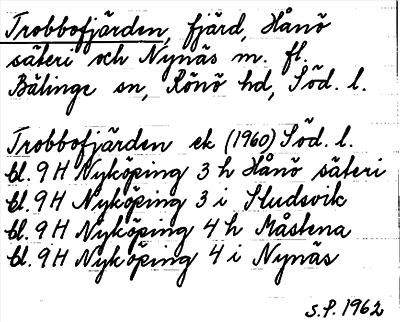 Trobbofjärden, fjärd, Hånö
säteri och Nynäs m. fl.
Bälinge sn, Rönö hd, Söd. l.
Trobbofjärden ek (1960) Söd. l.
bl. 9 H Nyköping 3 h Hånö säteri
bl. 9 H Nyköping 3 i Studsvik
bl. 9 H Nyköping 4 h Måstena
bl. 9 H Nyköping 4 i Nynäs
S.P. 1962